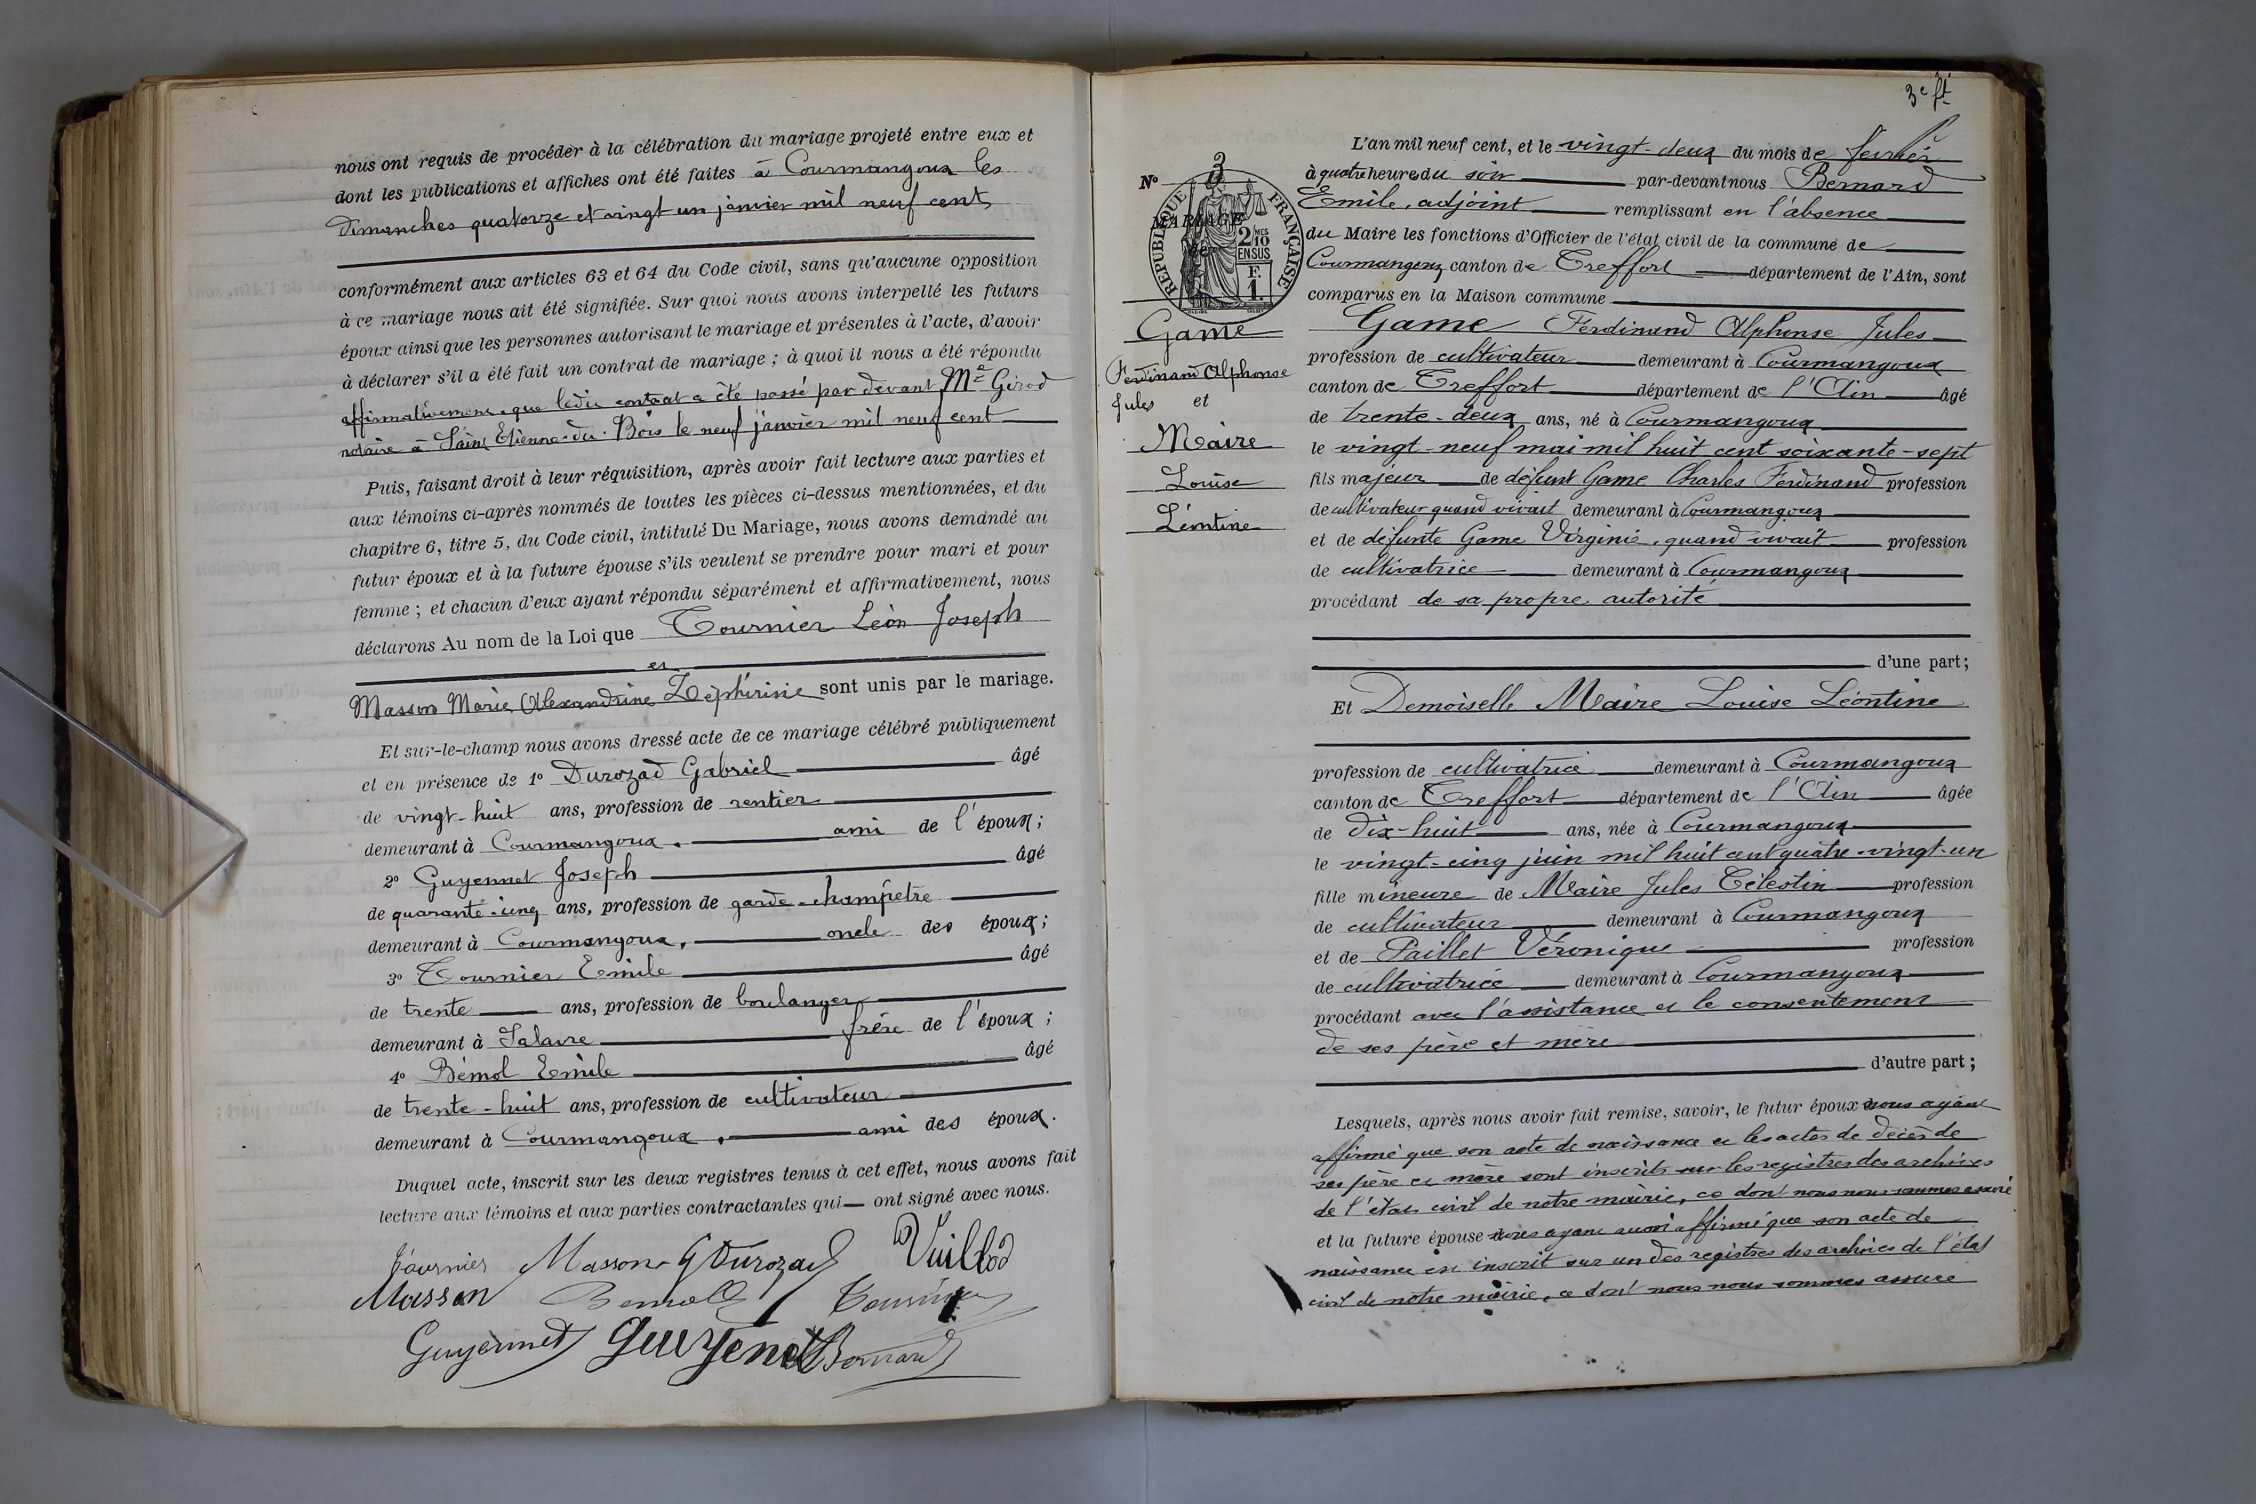 nous ont requis de procéder à la célébration du mariage projeté entre eux et
dont les publications et affiches ont été faites à Courmangoux les
Dimanches quatorze et vingt un janvier mil neuf cent
conformément aux articles 63 et 64 du Code civil, sans qu'aucune opposition
à ce mariage nous ait été signifiée. Sur quoi nous avons interpellé les futurs
époux ainsi que les personnes autorisant le mariage et présentes à l'acte, d'avoir
à déclarer s'il a été fait un contrat de mariage ; à quoi il nous a été répondu
affirmativement que ledit contrat a été passé par devant Me Girod
notaire à Saint Etienne-du-Bois le neuf janvier mil neuf cent
Puis, faisant droit à leur réquisition, après avoir fait lecture aux parties et
aux témoins ci-après nommés de toutes les pièces ci-dessus mentionnées, et du
chapitre 6, titre 5, du Code civil, intitulé Du Mariage, nous avons demandé au
futur époux et à la future épouse s'ils veulent se prendre pour mari et pour
femme ; et chacun d'eux ayant répondu séparément et affirmativement, nous
déclarons Au nom de la Loi que Tournier Léon Joseph
et
Masson Marie Alexandrine Zéphirine sont unis par le mariage.
Et sur-le-champ nous avons dressé acte de ce mariage célébré publiquement
et en présence de 1o Durozad Gabriel âgé
de vingt-huit ans, profession de rentier
demeurant à Courmangoux, ami de l'époux ;
2o Guyennet Joseph âgé
de quarante-cinq ans, profession de garde-champêtre
demeurant à Courmangoux, oncle des époux ;
3o Tournier Emile âgé
de trente ans, profession de boulanger
demeurant à Salavre frère de l'époux ;
4o Bémol Emile âgé
de trente-huit ans, profession de cultivateur
demeurant à Courmangoux, ami des époux.
Duquel acte, inscrit sur les deux registres tenus à cet effet, nous avons fait
lecture aux témoins et aux parties contractantes qui ont signé avec nous.
Tournier Masson G Durozad Vuillod
Masson Tournier
Guyennet Guyenet Bernard
3e ft
No 3
MARIAGE
de
RÉPUBLIQUE FRANÇAISE
2 MES
10
EN SUS
F.
1.
Game
Ferdinand Alphonse
Jules et
Maire
Louise
Léontine
L'an mil neuf cent, et le vingt-deux du mois de février
à quatre heures du soir par-devant nous Bernard
Emile, adjoint remplissant en l'absence
du Maire les fonctions d'Officier de l'état civil de la commune de
Courmangoux canton de Treffort département de l'Ain, sont
comparus en la Maison commune
Game Ferdinand Alphonse Jules
profession de cultivateur demeurant à Courmangoux
canton de Treffort département de l'Ain âgé
de trente-deux ans, né à Courmangoux
le vingt-neuf mai mil huit cent soixante-sept
fils majeur de défunt Game Charles Ferdinand profession
de cultivateur quand vivait demeurant à Courmangoux
et de défunte Game Virginie, quand vivait profession
de cultivatrice demeurant à Courmangoux
procédant de sa propre autorité
d'une part ;
Et Demoiselle Maire Louise Léontine
profession de cultivatrice demeurant à Courmangoux
canton de Treffort département de l'Ain âgée
de dix-huit ans, née à Courmangoux
le vingt-cinq juin mil huit cent quatre-vingt-un
fille mineure de Maire Jules Célestin profession
de cultivateur demeurant à Courmangoux
et de Paillet Véronique profession
de cultivatrice demeurant à Courmangoux
procédant avec l'assistance et le consentement
de ses père et mère
d'autre part ;
Lesquels, après nous avoir fait remise, savoir, le futur époux nous ayant
affirmé que son acte de naissance et les actes de décès de
ses père et mère sont inscrits sur les registres des archives
de l'état civil de notre mairie, ce dont nous nous sommes assuré
et la future épouse nous ayant aussi affirmé que son acte de
naissance est inscrit sur un des registres des archives de l'état
civil de notre mairie, ce dont nous nous sommes assuré